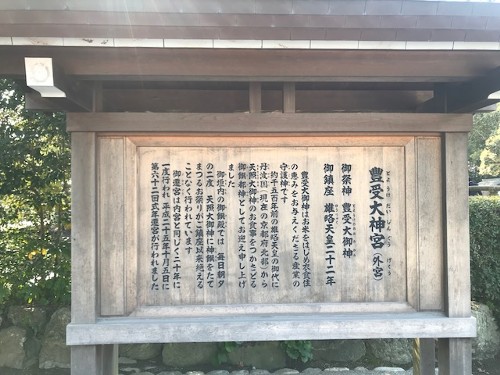 豊受大神宮（外宮）
御祭神 豊受大御神
御鎮座 雄略天皇二十二年
豊受大御神はお米をはじめ衣食住
の恵みをお与えくださる産業の
守護神です
約千五百年前の雄略天皇の御代に
丹波国（現在の京都府北部）から
天照大御神のお食事をつかさどる
御饌都神としてお迎え申し上げ
ました
御垣内の御饌殿では 毎日朝夕
の二度 天照大御神に神饌をたて
まつるお祭りがご鎮座以来絶える
ことなく行われています
御遷宮は内宮と同じく二十年に
一度行われ 平成二十五年十月五日に
第六十二回式年遷宮が行われました